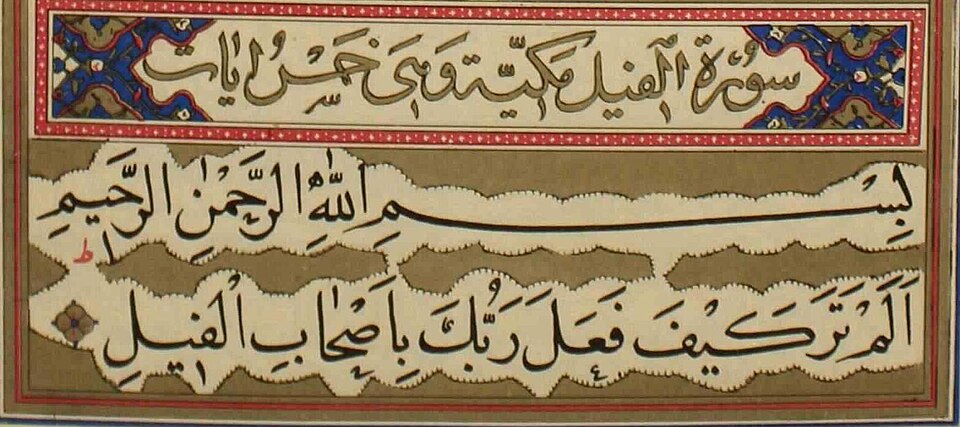 سُورَةُ الْفِيل مَكِّيَّة وَهِيَ خَمْسُ اٰيات
بِسْمِ اللّٰهِ الرَّحْمٰنِ الرَّحِيمِ
ط
اَلَمْ تَرَ كَيْفَ فَعَلَ رَبُّكَ بِاَصْحَابِ الْفِيلِ